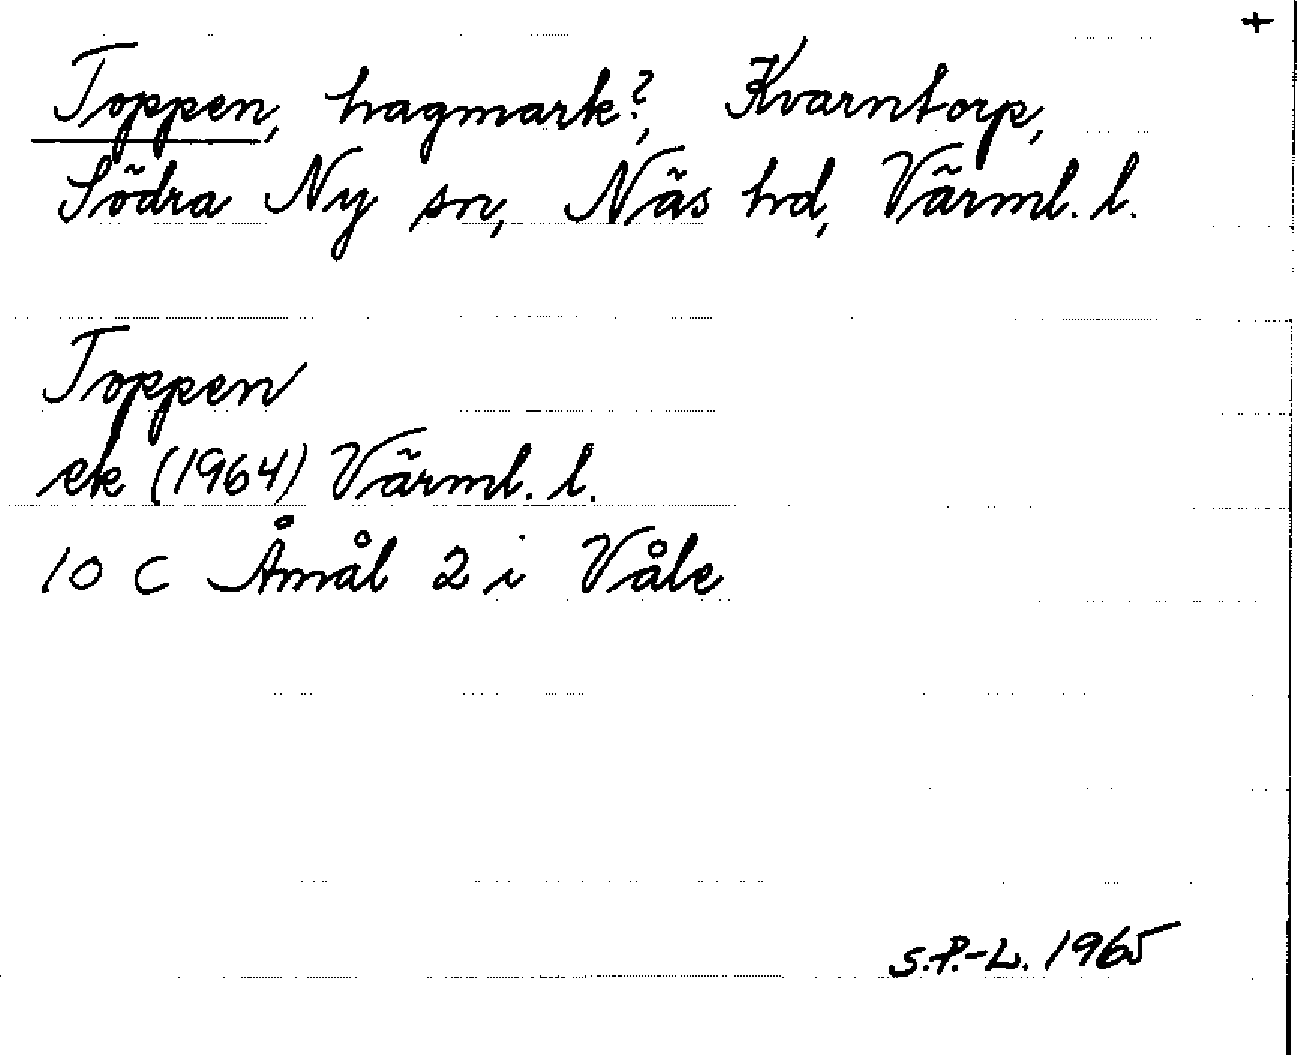 +
Toppen, hagmark?, Kvarntorp,
Södra Ny sn, Näs hd, Värml. l.
Toppen
ek (1964) Värml. l.
10 C Åmål 2 i Våle
S.P.-L. 1965